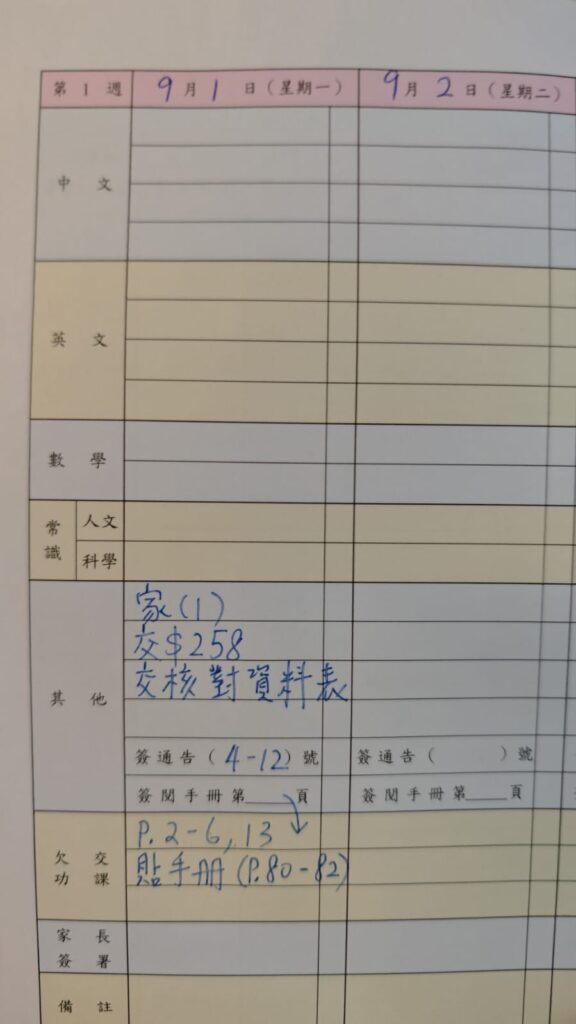 第 1 週 9月 1 日(星期一) 9月 2 日(星期二)
中 文
英 文
數 學
常識 人文
科學
其 他
家(1)
交$258
交核對資料表
簽通告(4-12)號 簽通告( )號
簽閱手冊第____頁 簽閱手冊第____頁
欠 交
功 課
P.2-6, 13
貼手冊(P.80-82)
家 長
簽 署
備 註